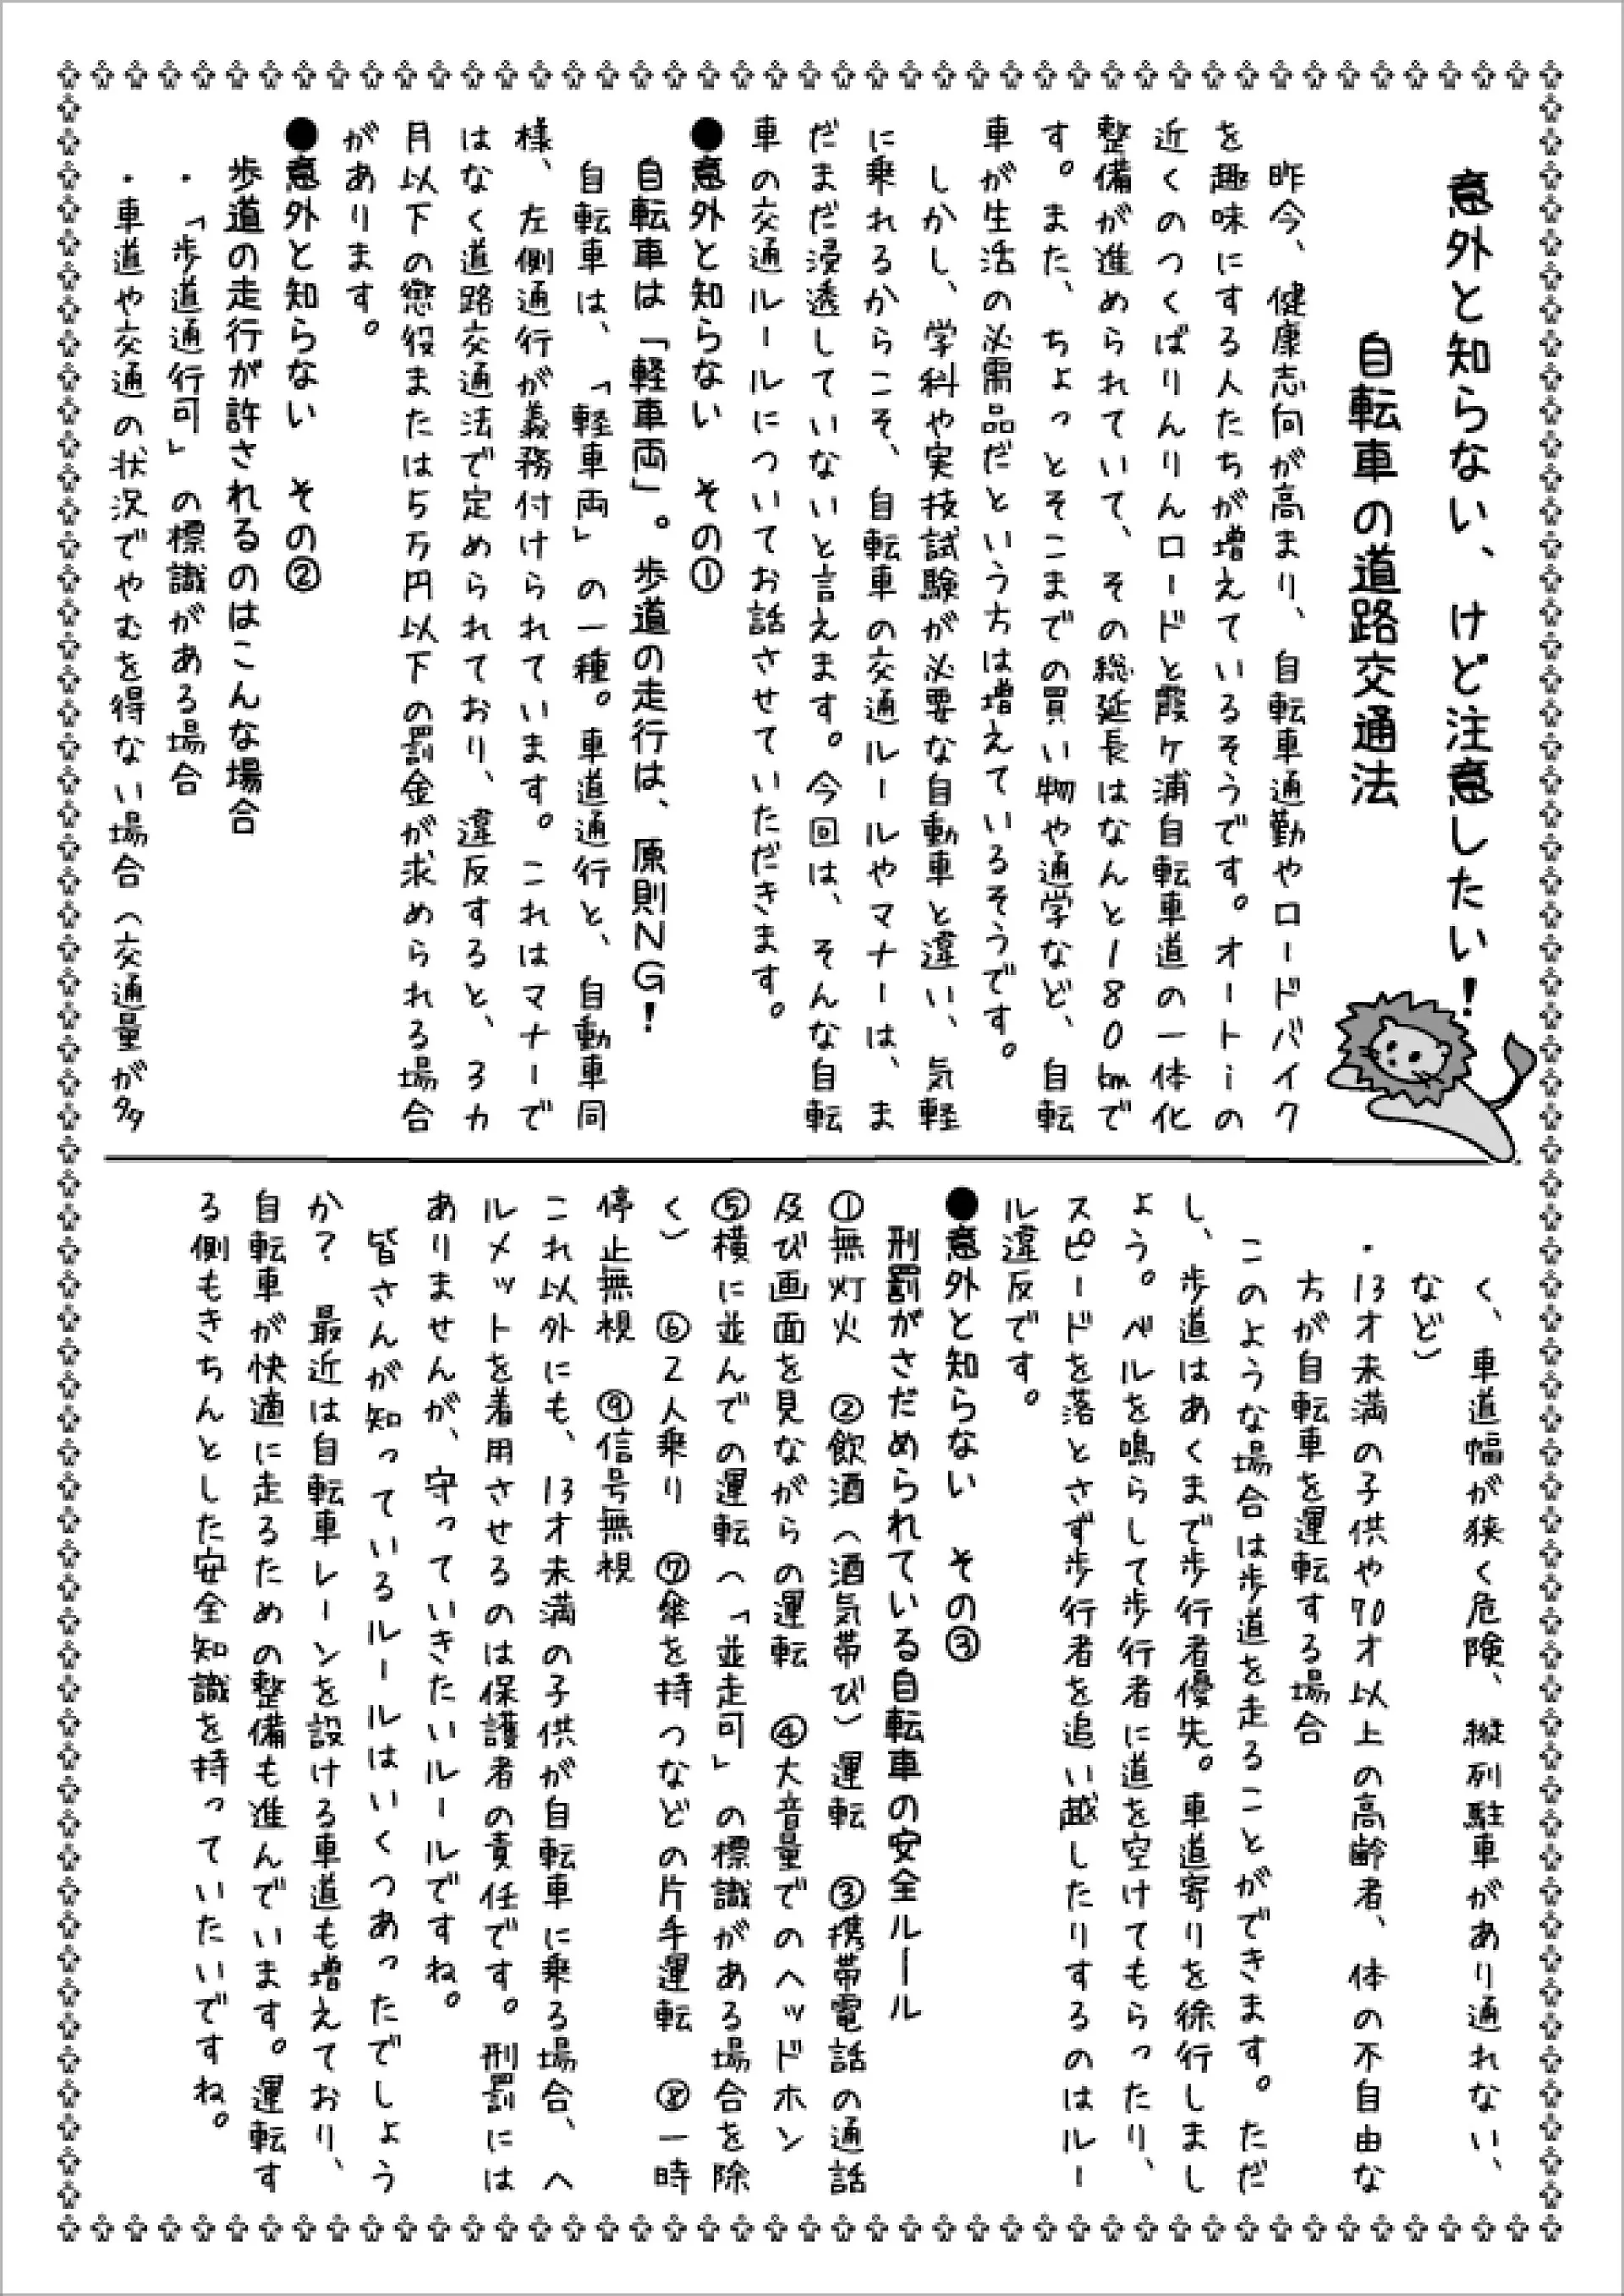 意外と知らない、けど注意したい！
自転車の道路交通法
昨今、健康志向が高まり、自転車通勤やロードバイク
を趣味にする人たちが増えているそうです。オートｉの
近くのつくばりんりんロードと霞ケ浦自転車道の一体化
整備が進められていて、その総延長はなんと１８０㎞で
す。また、ちょっとそこまでの買い物や通学など、自転
車が生活の必需品だという方は増えているそうです。
しかし、学科や実技試験が必要な自動車と違い、気軽
に乗れるからこそ、自転車の交通ルールやマナーは、ま
だまだ浸透していないと言えます。今回は、そんな自転
車の交通ルールについてお話させていただきます。
●意外と知らない　その①
自転車は「軽車両」。歩道の走行は、原則ＮＧ！
自転車は、「軽車両」の一種。車道通行と、自動車同
様、左側通行が義務付けられています。これはマナーで
はなく道路交通法で定められており、違反すると、３カ
月以下の懲役または５万円以下の罰金が求められる場合
があります。
●意外と知らない　その②
歩道の走行が許されるのはこんな場合
・「歩道通行可」の標識がある場合
・車道や交通の状況でやむを得ない場合（交通量が多
く、車道幅が狭く危険、縦列駐車があり通れない、
など）
・13才未満の子供や70才以上の高齢者、体の不自由な
方が自転車を運転する場合
このような場合は歩道を走ることができます。ただ
し、歩道はあくまで歩行者優先。車道寄りを徐行しまし
ょう。ベルを鳴らして歩行者に道を空けてもらったり、
スピードを落とさず歩行者を追い越したりするのはルー
ル違反です。
●意外と知らない　その③
刑罰がさだめられている自転車の安全ルール
①無灯火　②飲酒（酒気帯び）運転　③携帯電話の通話
及び画面を見ながらの運転　④大音量でのヘッドホン
⑤横に並んでの運転（「並走可」の標識がある場合を除
く）　⑥２人乗り　⑦傘を持つなどの片手運転　⑧一時
停止無視　⑨信号無視
これ以外にも、13才未満の子供が自転車に乗る場合、ヘ
ルメットを着用させるのは保護者の責任です。刑罰には
ありませんが、守っていきたいルールですね。
皆さんが知っているルールはいくつあったでしょう
か？　最近は自転車レーンを設ける車道も増えており、
自転車が快適に走るための整備も進んでいます。運転す
る側もきちんとした安全知識を持っていたいですね。